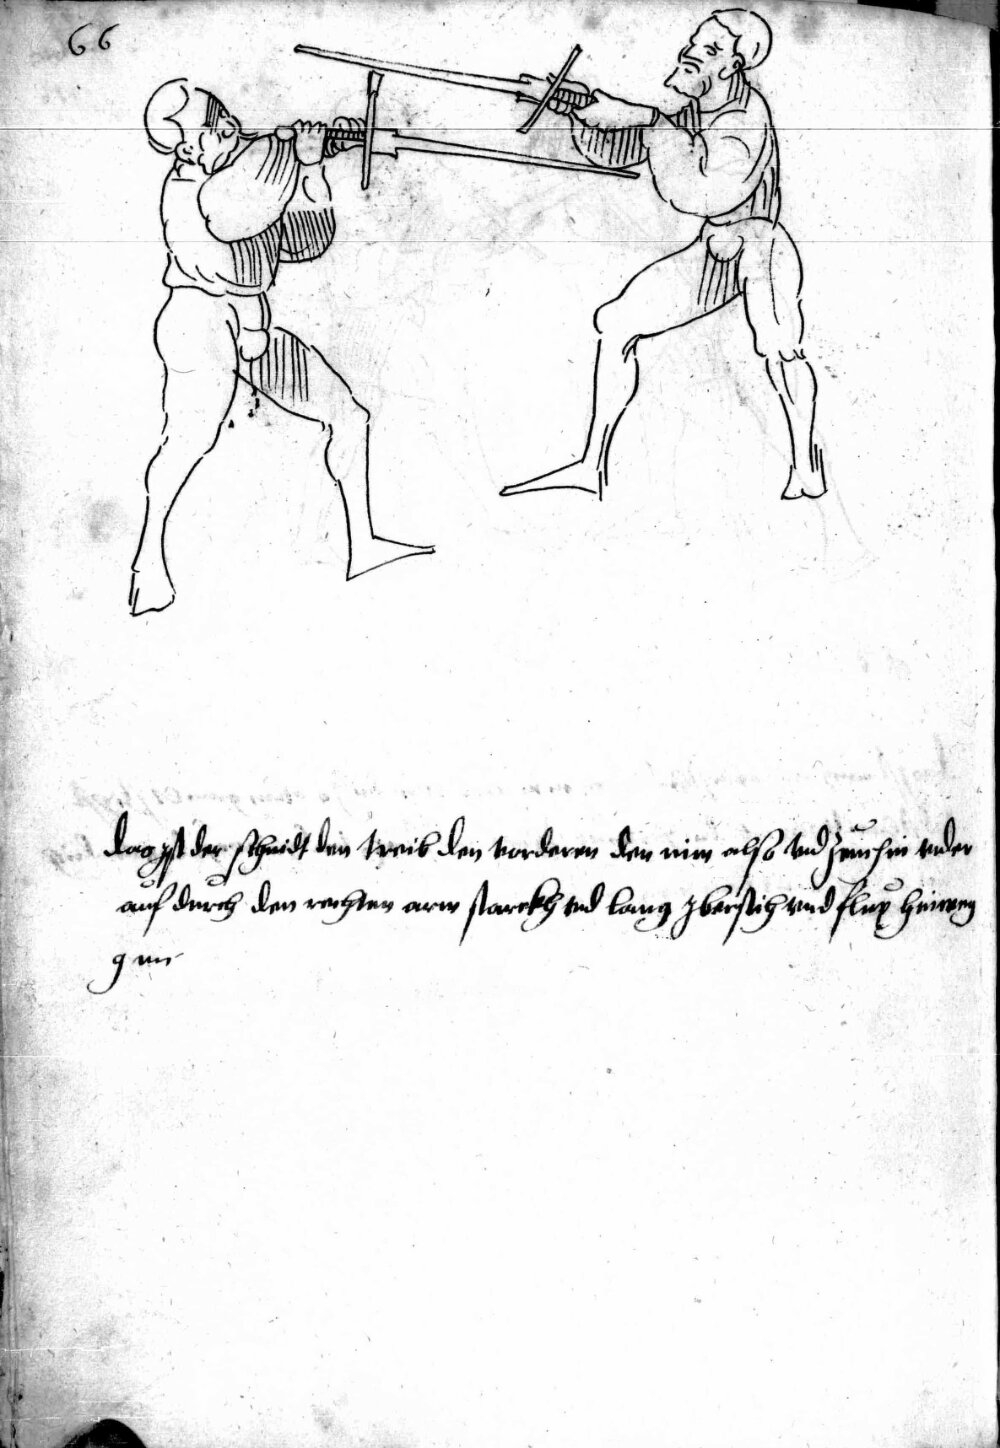 66
das yst der schnidt den treib den vorderen den nim also vnd zeuch in vnder
auf durch den rechten arm starckh vnd lang vbersich vnd flux hinweg